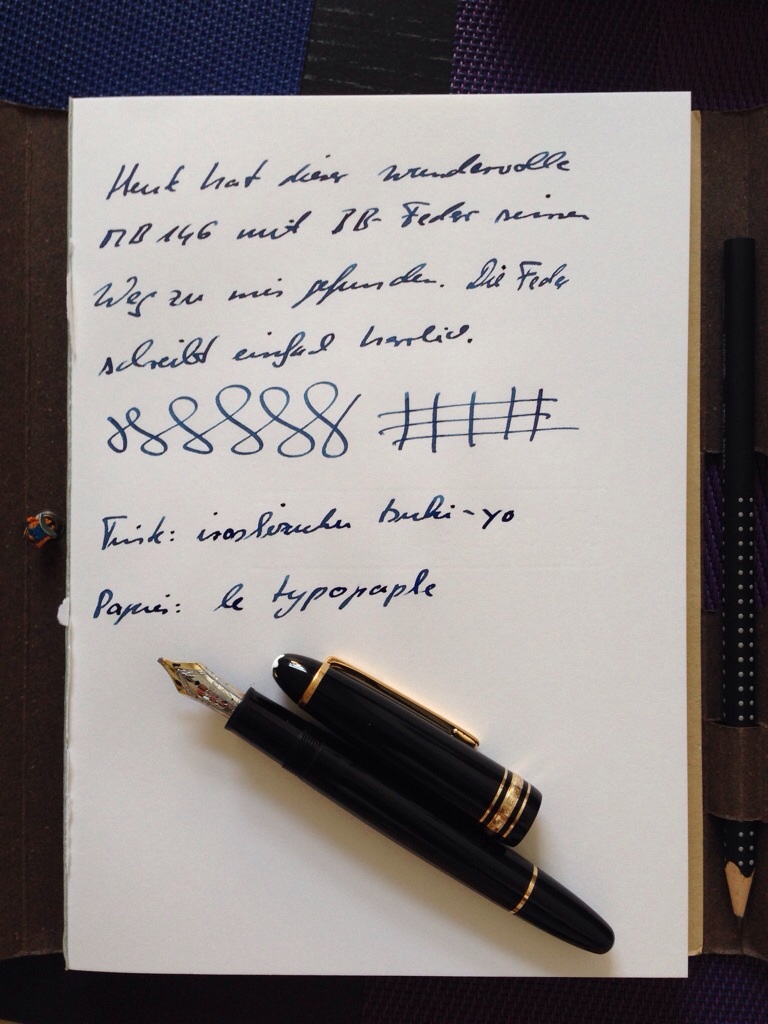 Heut hat dieser wundervolle
MB 146 mit BB-Feder seinen
Weg zu mir gefunden. Die Feder
schreibt einfach herrlich.
Tinte: iroshizuku tsuki-yo
Papier: le typographe